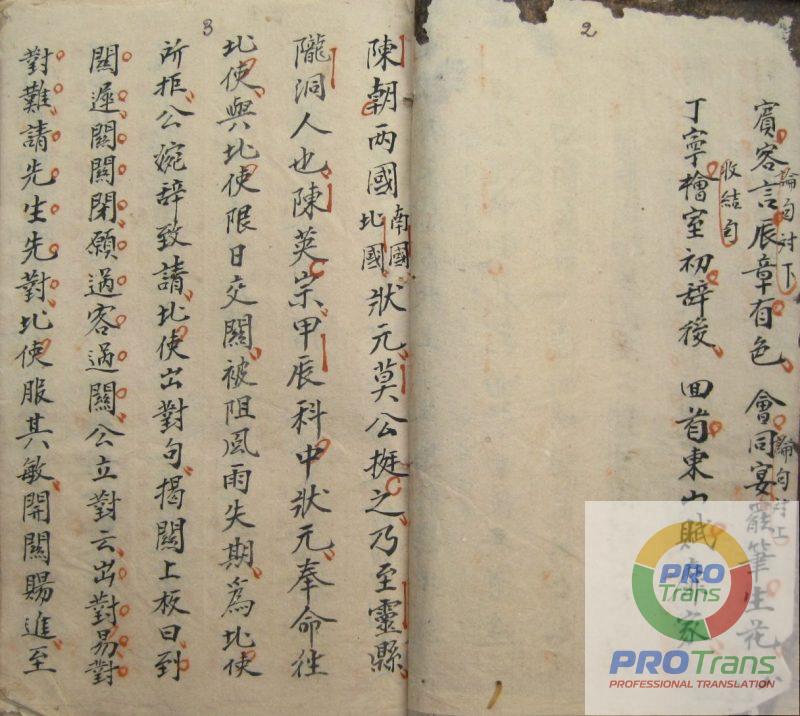 2
賓客言辰章有色 會同宴罷筆生花
論句对下
論句对上
丁寧檜室初辞後 囬首東山賦 家
收結句
3
陳朝两國南國北國狀元莫公挺之乃至靈縣
隴洞人也陳英宗甲辰科中狀元奉命徃
北使與北使限日交關被阻風雨失期爲北使
所拒公婉辞致請北使出對句揭關上板曰到
關遲關關閉願過客過關公立對云出對易對
對難請先生先對北使服其敏開關賜進至
PRO
Trans
PROTrans
PROFESSIONAL TRANSLATION